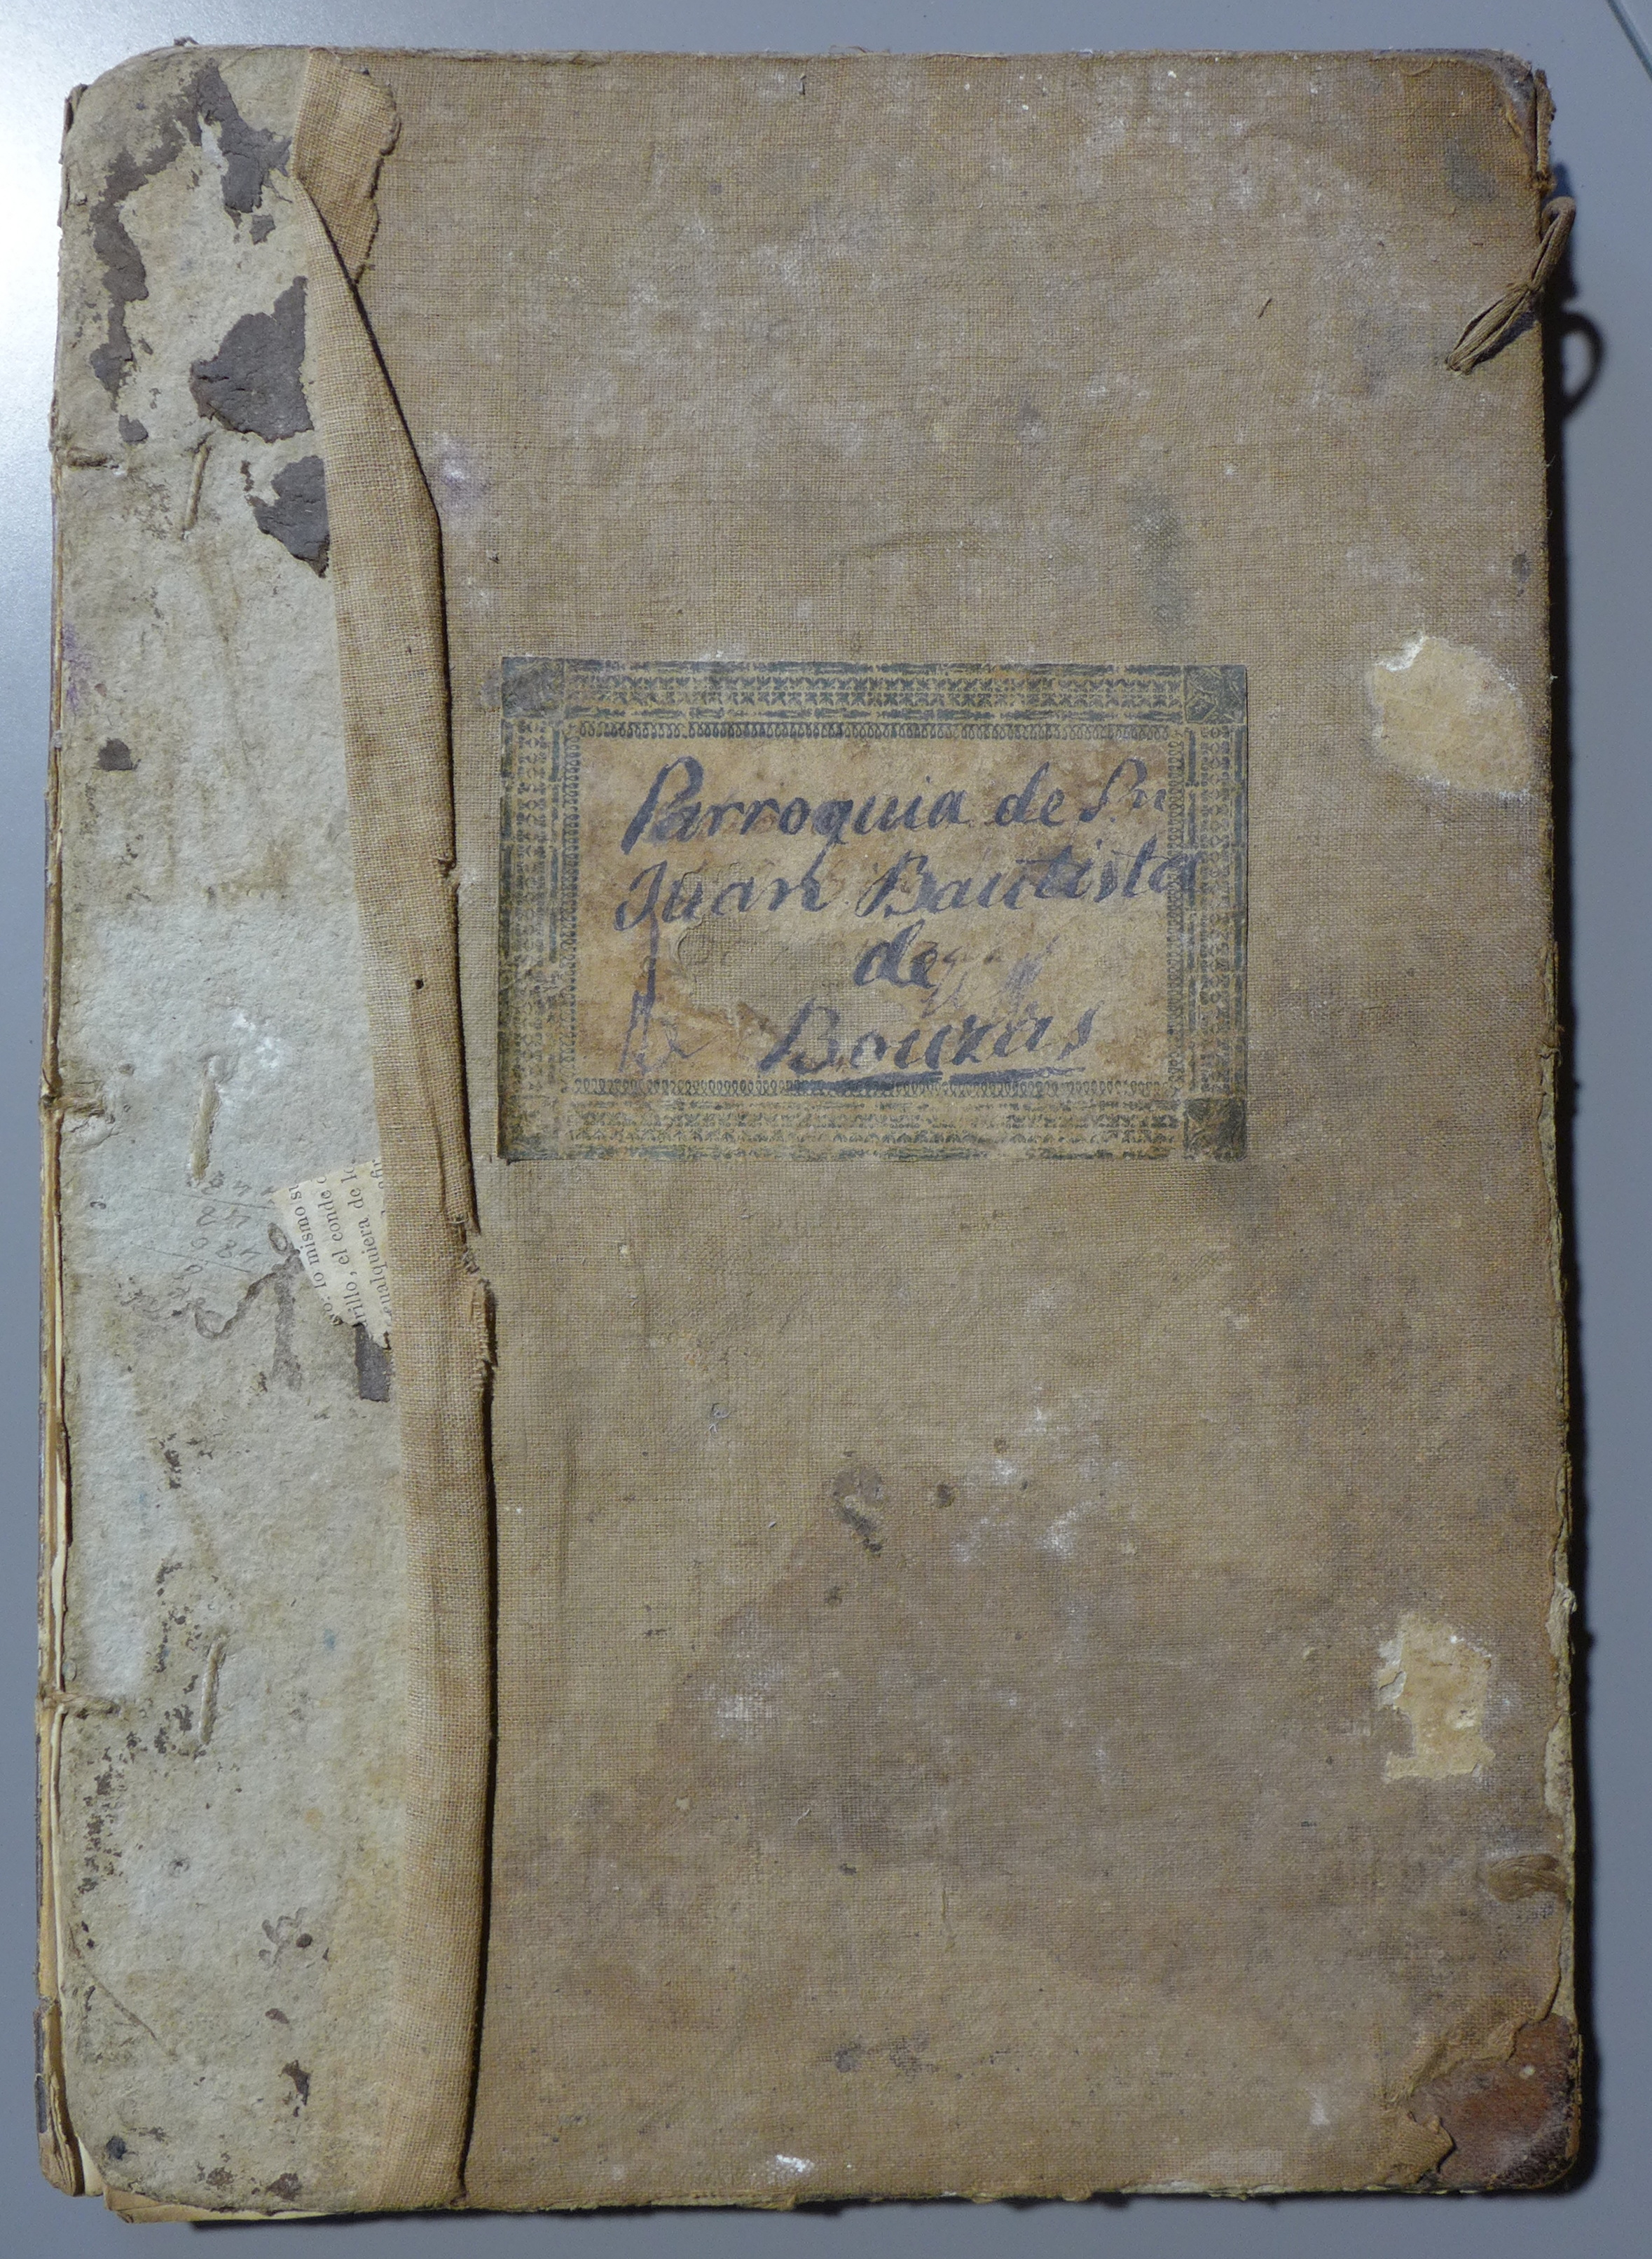 Parroquia de Sn
Juan Bautista
de
Bouzas
lo mismo s
rillo, el conde
cualquiera de lo